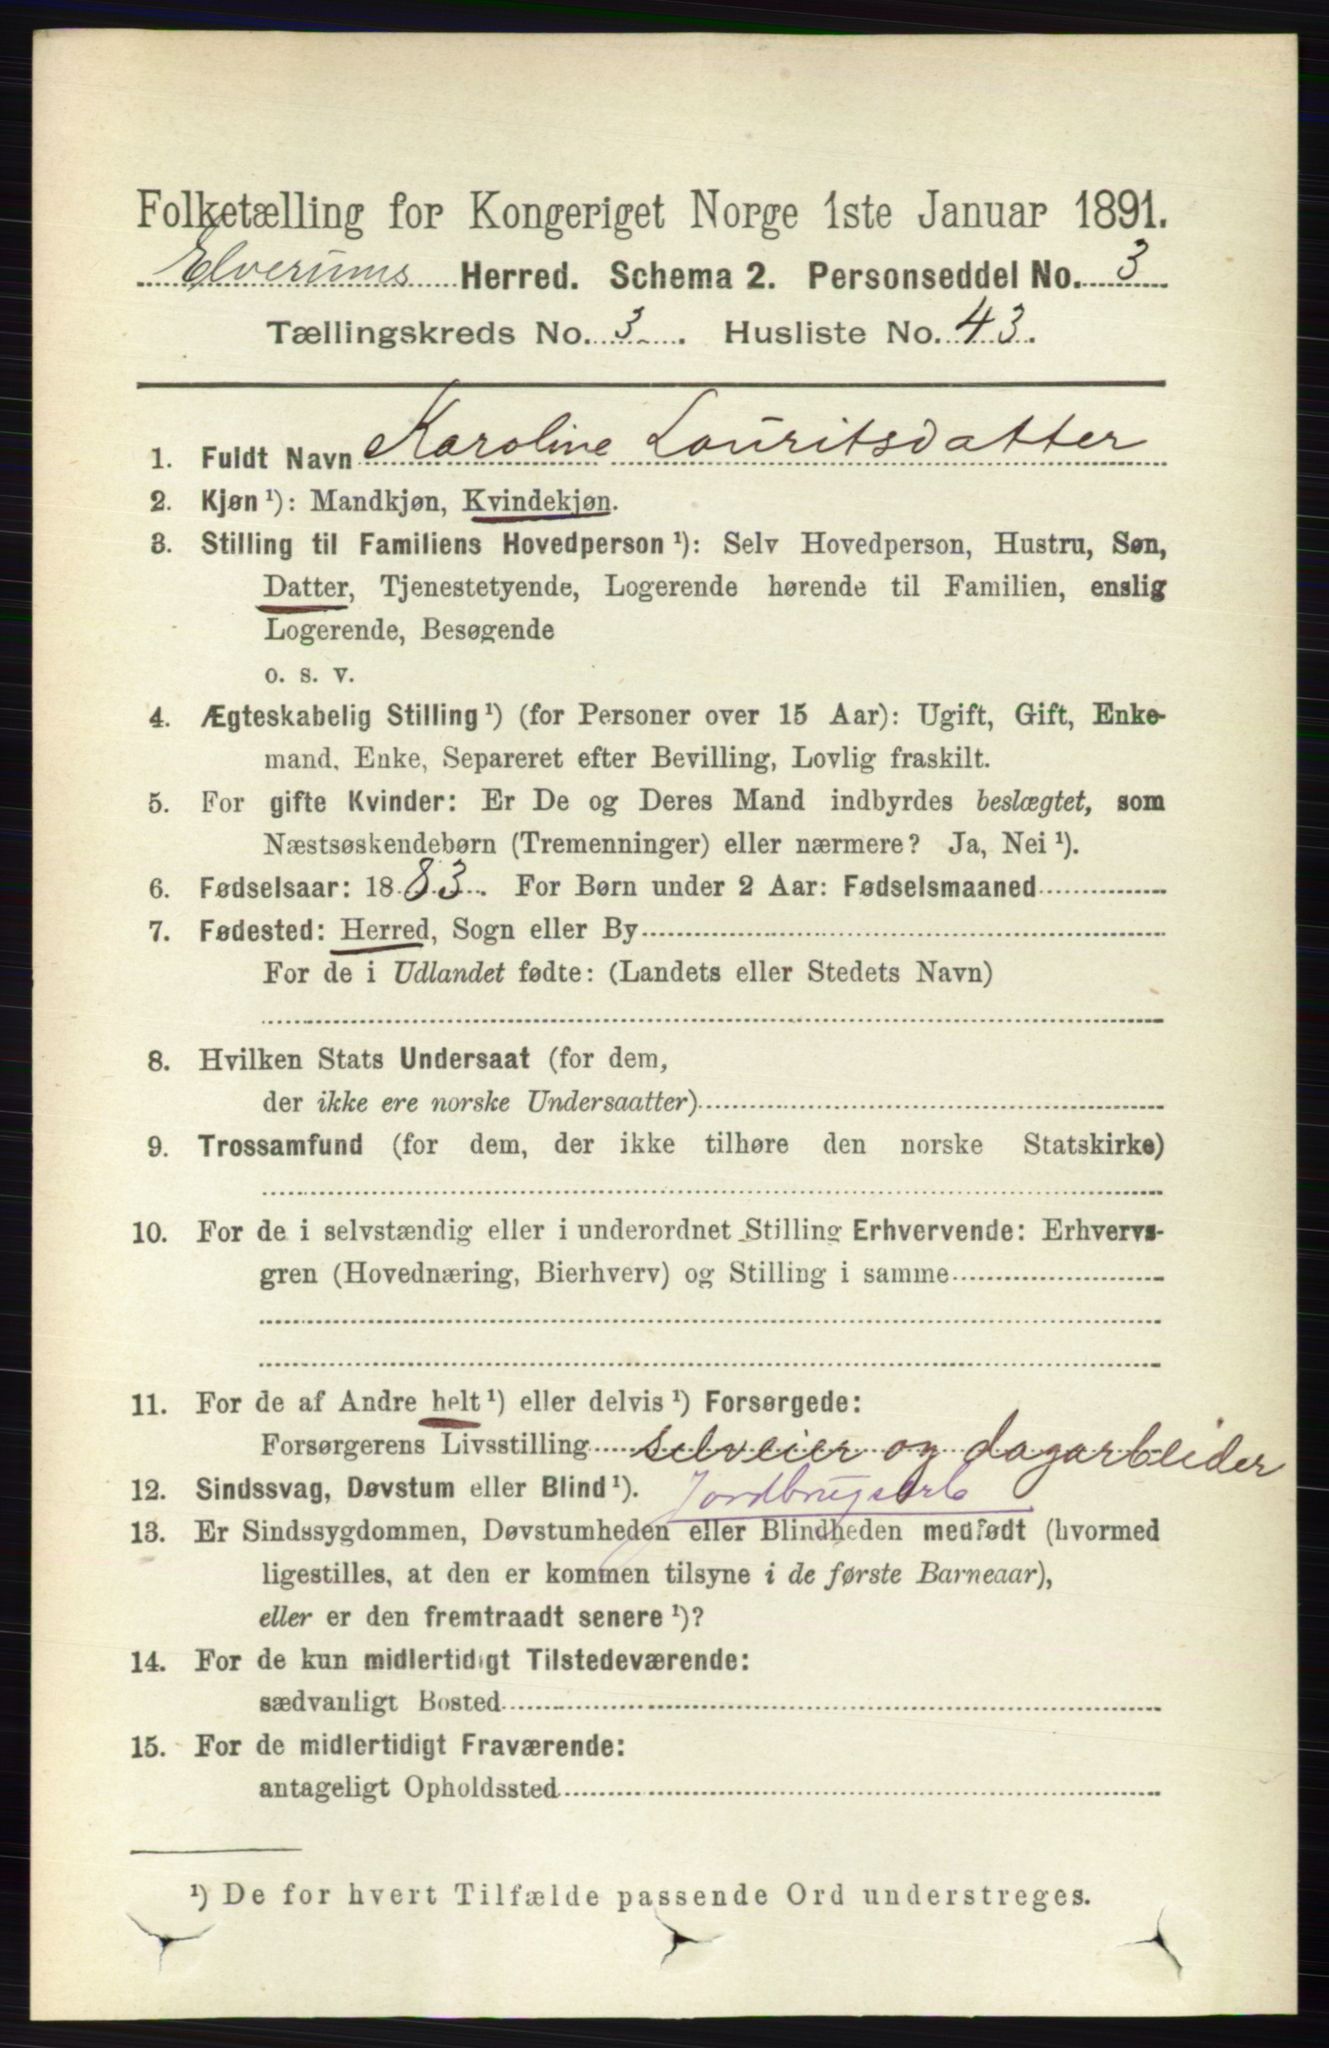 Folketælling for Kongeriget Norge 1ste Januar 1891.
Elverums Herred. Schema 2. Personseddel No. 3
Tællingskreds No. 3. Husliste No. 43.
1. Fuldt Navn Karoline Louritsdatter
2. Kjøn ¹): Mandkjøn, Kvindekjøn.
3. Stilling til Familiens Hovedperson ¹): Selv Hovedperson, Hustru, Søn,
Datter, Tjenestetyende, Logerende hørende til Familien, enslig
Logerende, Besøgende
o. s. v.
4. Ægteskabelig Stilling ¹) (for Personer over 15 Aar): Ugift, Gift, Enke-
mand, Enke, Separeret efter Bevilling, Lovlig fraskilt.
5. For gifte Kvinder: Er De og Deres Mand indbyrdes beslægtet, som
Næstsøskendebørn (Tremenninger) eller nærmere? Ja, Nei ¹).
6. Fødselsaar: 1883. For Børn under 2 Aar: Fødselsmaaned
7. Fødested: Herred, Sogn eller By
For de i Udlandet fødte: (Landets eller Stedets Navn)
8. Hvilken Stats Undersaat (for dem,
der ikke ere norske Undersaatter)
9. Trossamfund (for dem, der ikke tilhøre den norske Statskirke)
10. For de i selvstændig eller i underordnet Stilling Erhvervende: Erhvervs-
gren (Hovednæring, Bierhverv) og Stilling i samme
11. For de af Andre helt ¹) eller delvis ¹) Forsørgede:
Forsørgerens Livsstilling selveier og dagarbeider
12. Sindssvag, Døvstum eller Blind ¹). Jordbrugsarb
13. Er Sindssygdommen, Døvstumheden eller Blindheden medfødt (hvormed
ligestilles, at den er kommen tilsyne i de første Barneaar),
eller er den fremtraadt senere ¹)?
14. For de kun midlertidigt Tilstedeværende:
sædvanligt Bosted
15. For de midlertidigt Fraværende:
antageligt Opholdssted
¹) De for hvert Tilfælde passende Ord understreges.